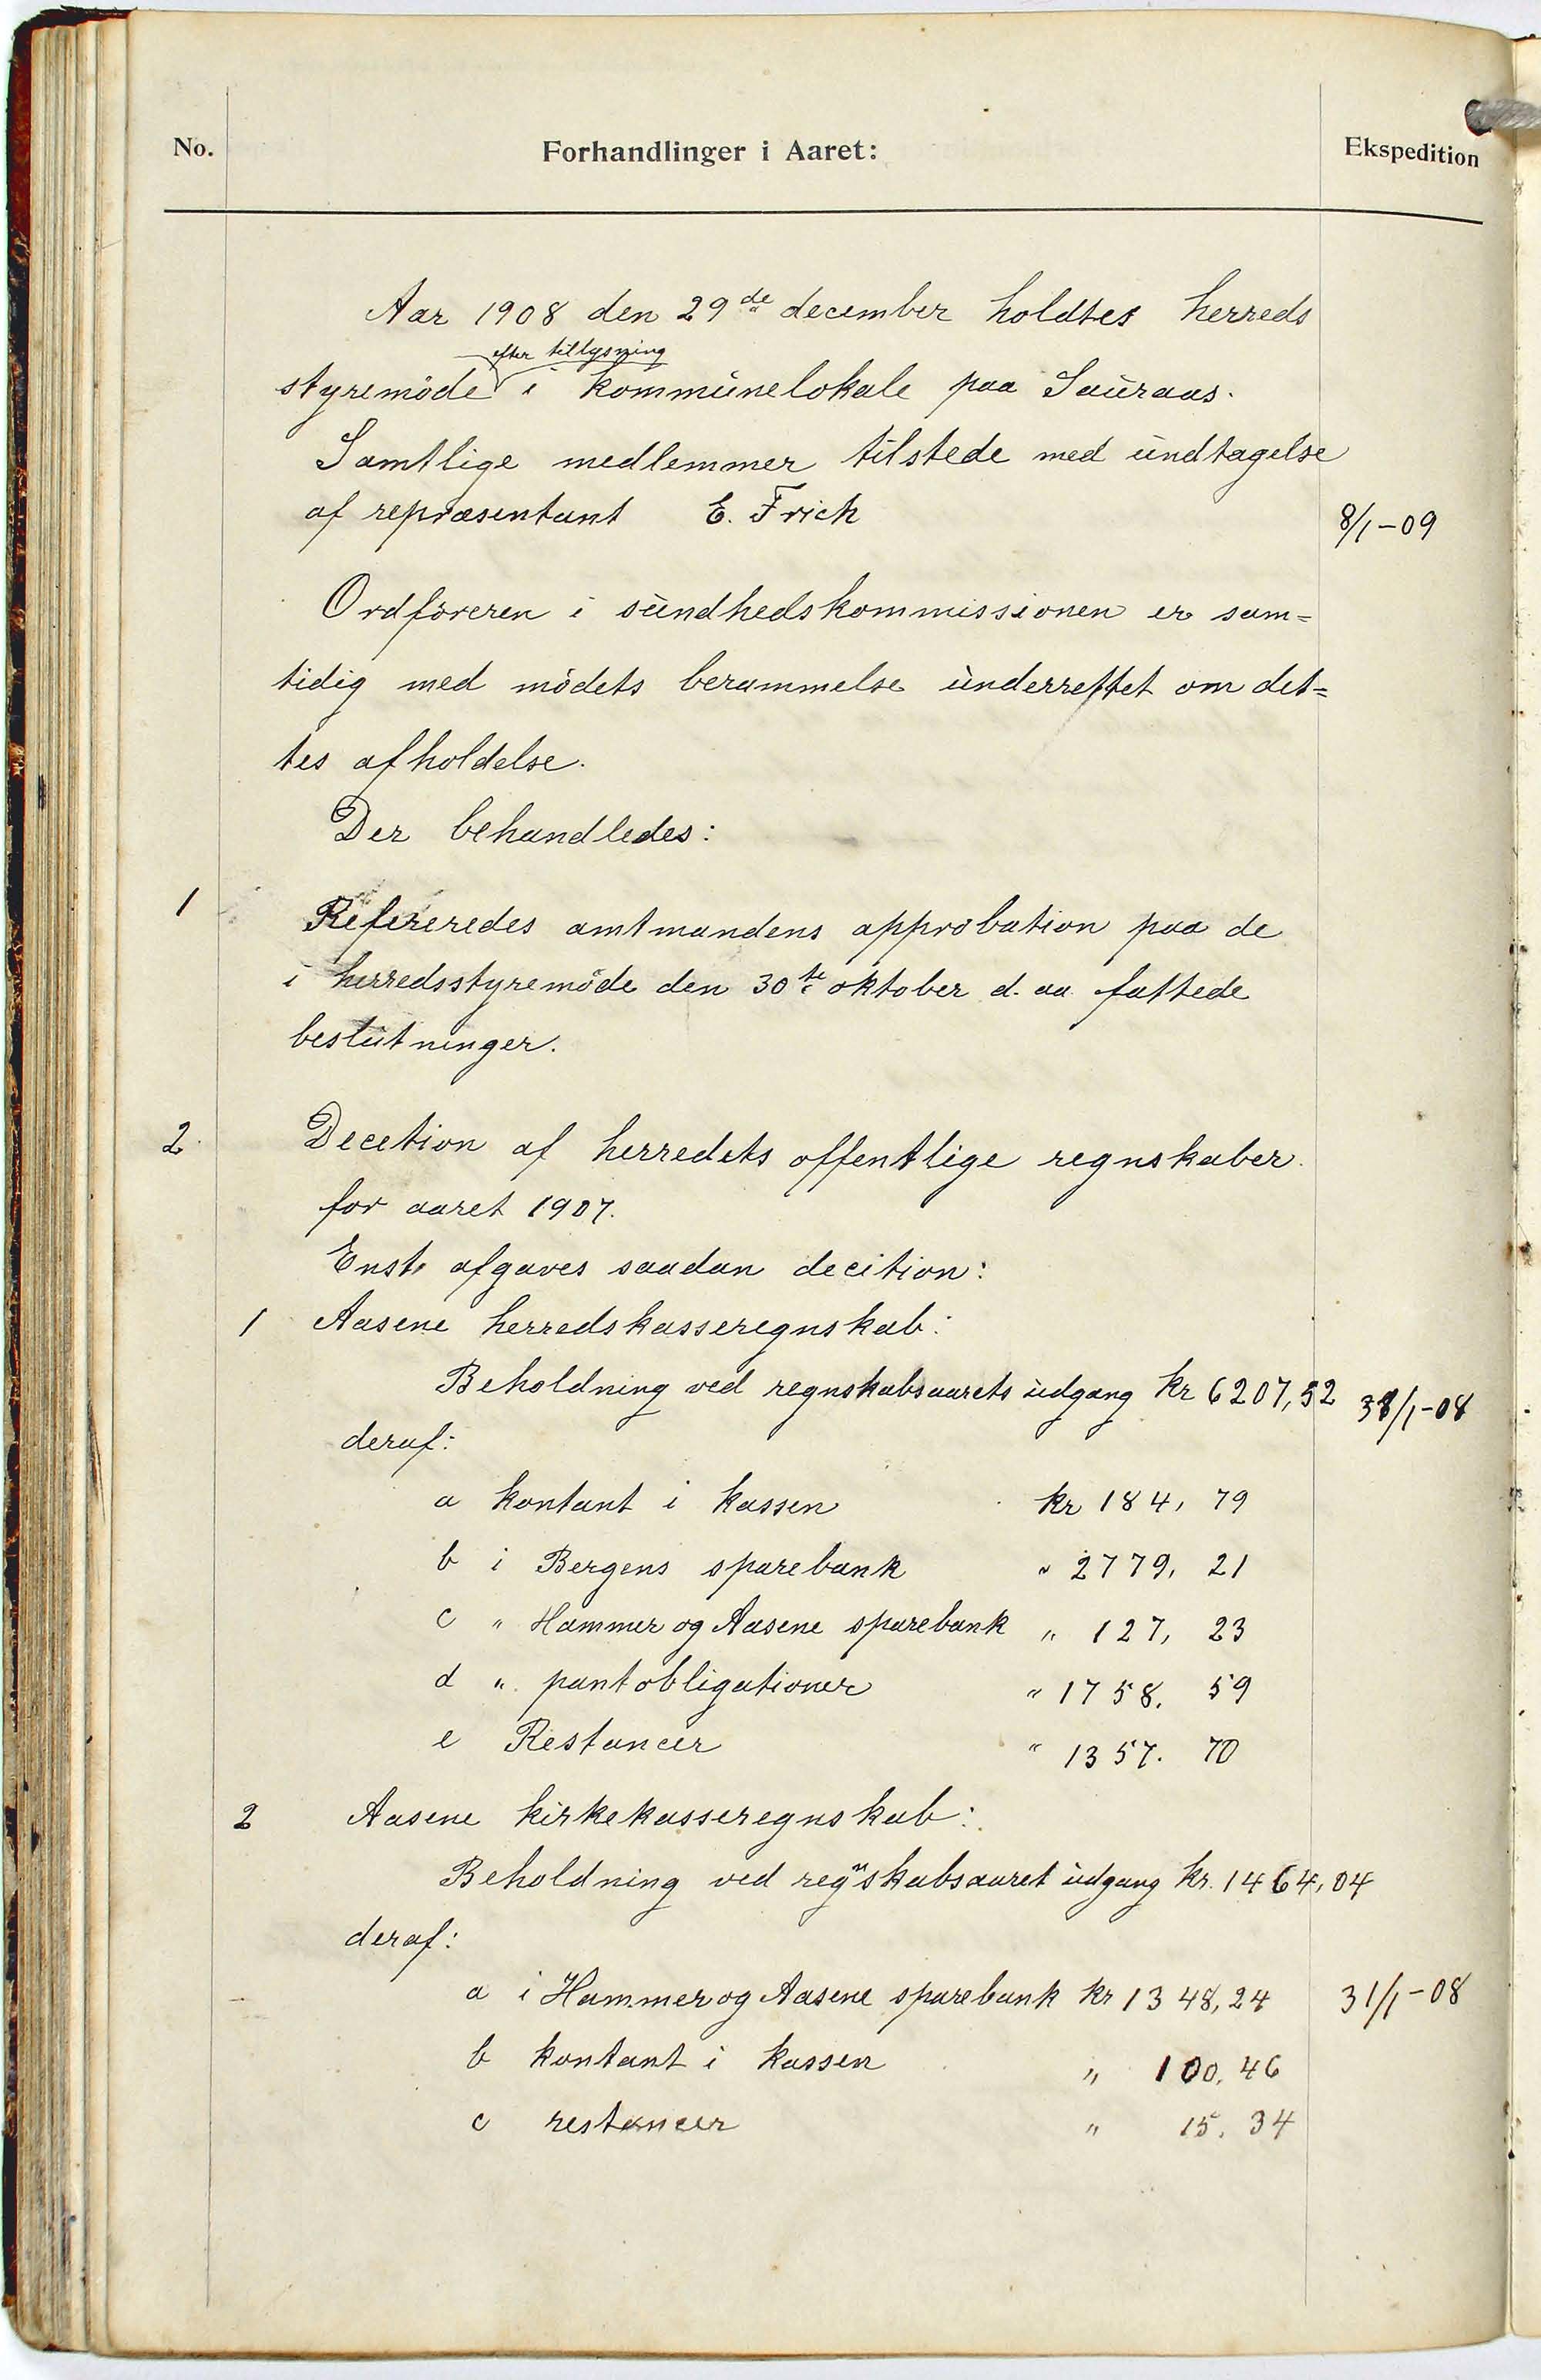 No. Forhandlinger i Aaret: Ekspedition
Aar 1908 den 29de december holdtes herreds
efter tillysning
styremöde i kommunelokale paa Sauraas.
Samtlige medlemmer tilstede med undtagelse
af repræsentant E. Frich 8/1-09
Ordföreren i sundhedskommissionen er sam=
tidig med mödets berammelse underrettet om det=
tes afholdelse.
Der behandledes:
1 Refereredes amtmandens approbation paa de
i herredsstyremöde den 30te oktober d. aa. fattede
beslutninger.
2. Decetion af herredets offentlige regnskaber
for aaret 1907.
Enst. afgaves saadan decition:
1 Aasene herredskasseregnskab:
Beholdning ved regnskabsaarets udgang kr 6207,52 31/1-08
deraf:
a kontant i kassen kr 184, 79
b i Bergens sparebank " 2779, 21
c " Hammer og Aasene sparebank " 127, 23
d " pantobligationer " 1758. 59
e Restancer " 1357. 70
2 Aasene kirkekasseregnskab:
Beholdning ved regnskabsaaret udgang kr. 1464,04
deraf:
a i Hammer og Aasene sparebank kr 1348,24 31/1-08
b kontant i kassen " 100,46
c restancer " 15. 34